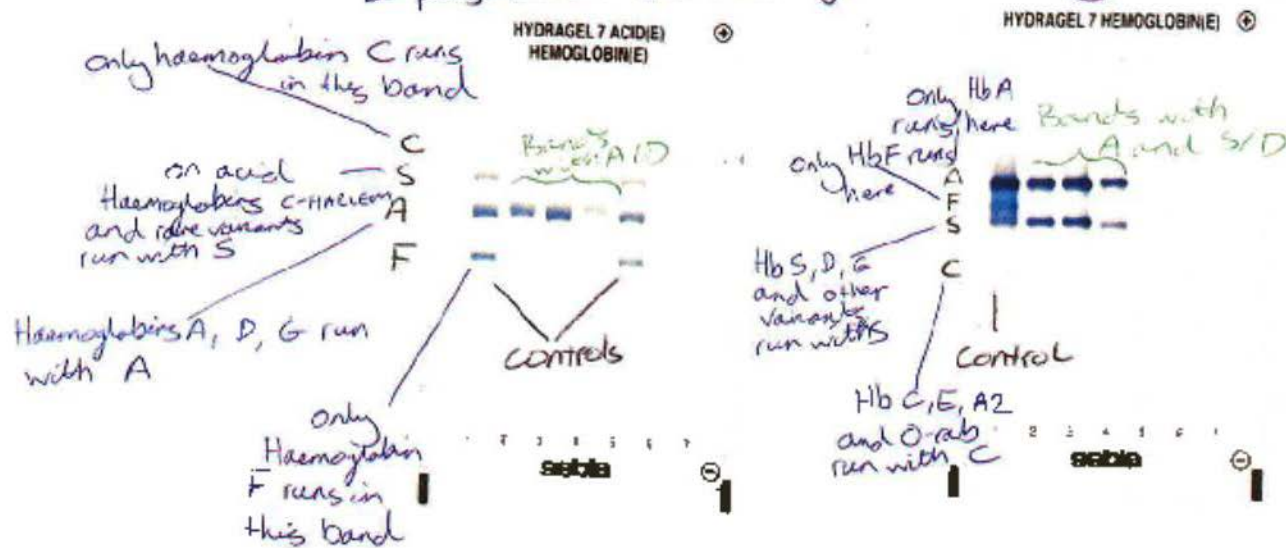 HYDRAGEL 7 ACID(E)
HEMOGLOBIN(E)
+
only haemoglobin C runs
in this band
C
S
A
F
on acid
Haemoglobins C-HARLEM
and rare variants
run with S
Haemoglobins A, D, G run
with A
only
Haemoglobin
F runs in
this band
Bands
A/D
controls
2 3 4 5 6 7
sebia
-
HYDRAGEL 7 HEMOGLOBIN(E)
+
only HbA
runs here
only HbF runs
here
Bands with
A and S/D
A
F
S
C
HbS, D, G
and other
variants
run with S
Control
Hb C, E, A2
and O-rab
run with C
2 3 4 5 6 7
sebia
-